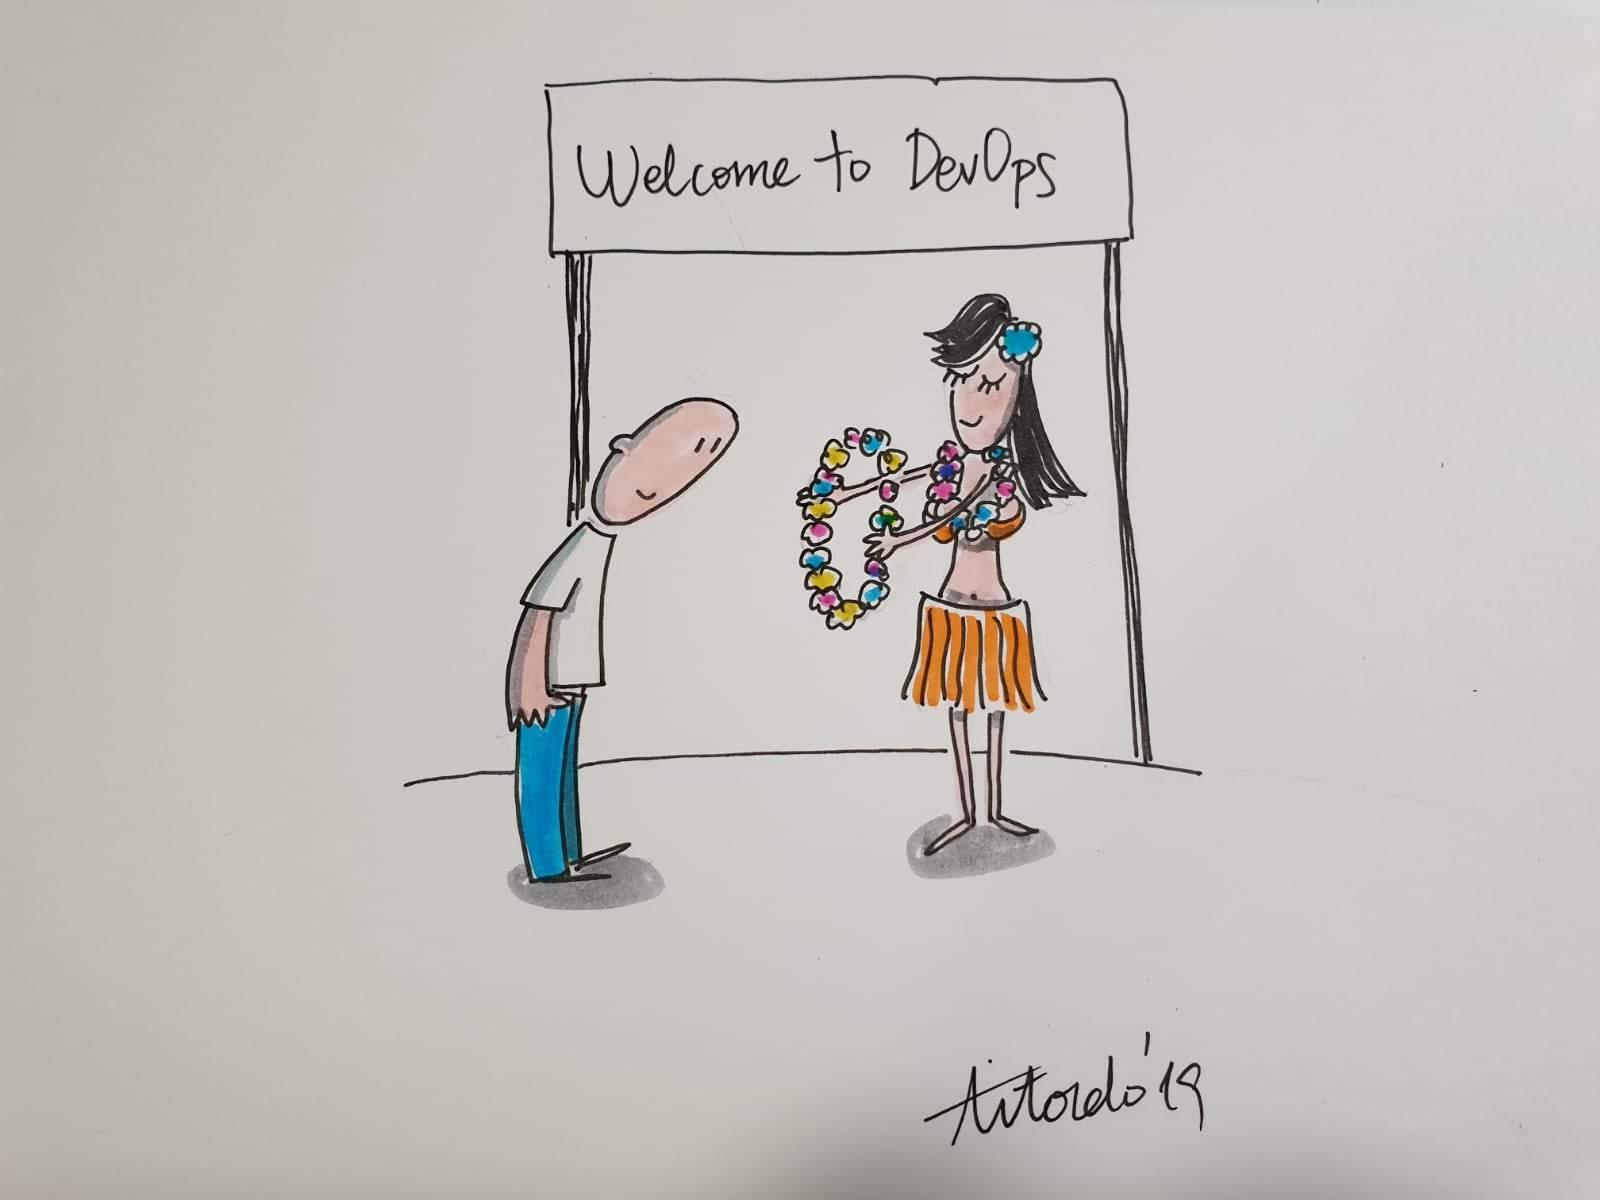 Welcome to DevOps
Aitordo'19